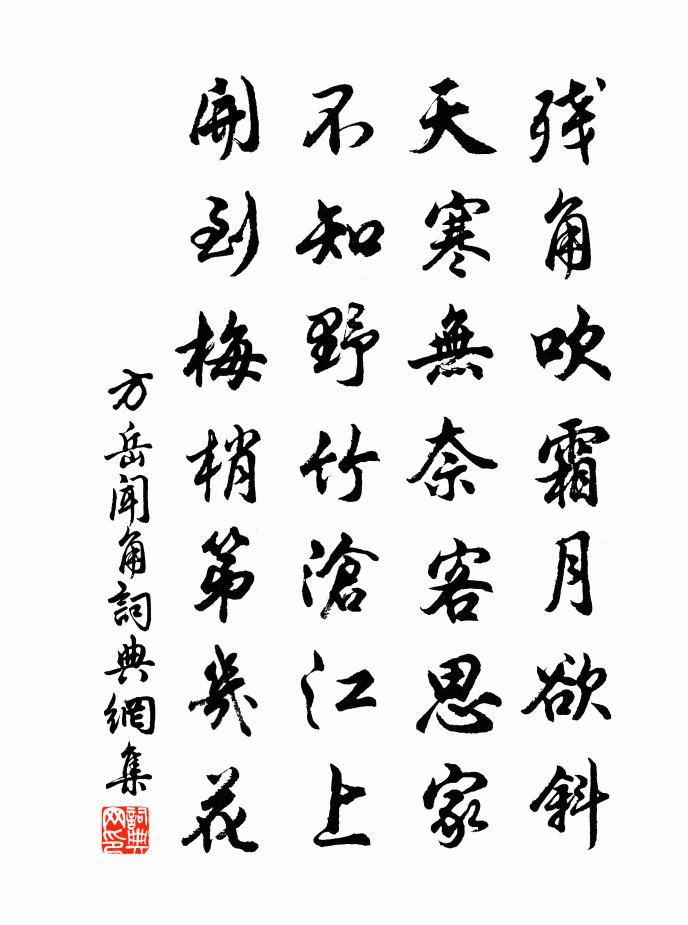 残角吹霜月欲斜
天寒無奈客思家
不知野竹滄江上
開到梅梢第幾花
方岳聞角詞典網集
詞典网印